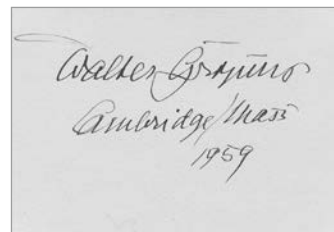 Walter Gropius
Cambridge/Mass
1959